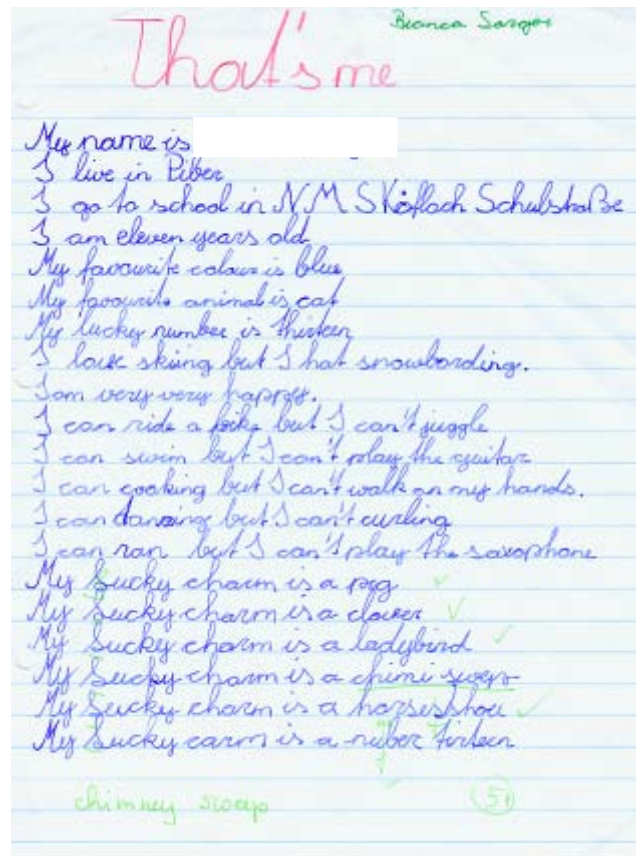 Bianca
That's me
My name is
I live in Piber
I go to school in NMS Köflach Schulstraße.
I am eleven years old
My favourite colour is blue
My favourite animal is cat
My lucky number is thirteen
I love skiing but I hat snowbording.
I am very very happy.
I can ride a bike but I can't juggle
I can swim but I can't play the guitar
I can cooking but I can't walk on my hands.
I can dancing but I can't curling
I can ran but I can't play the saxophone
My lucky charm is a pig
My lucky charm is a clover
My lucky charm is a ladybird
My lucky charm is a chimi
My lucky charm is a
My lucky carm is a
chimney sweep